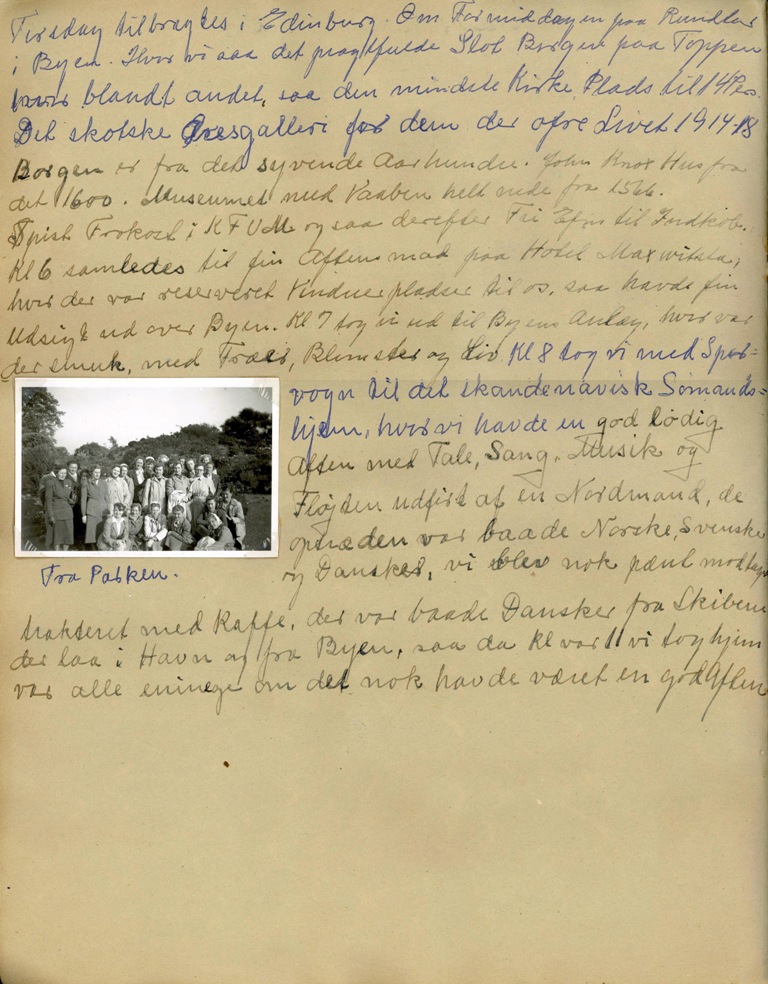 Tirsdag tilbragtes i Edinburg. Om Formiddagen paa Rundtur
i Byen. Hvor vi saa det pragtfulde Slot Borgen paa Toppen
hvor blandt andet, saa den mindste Kirke Plads til 14 Pers.
Det skotske Æresgalleri for dem der ofre Livet 1914-18
Borgen er fra det syvende Aarhundre. John Knox Hus fra
det 1600. Museumet med Vaaben helt nede fra 1566.
Spist Frokost i KFUM og saa derefter Fri Efm til Indkøb.
Kl 6 samledes til fin Aftensmad paa Hotel
hvor der var reserveret Vinduerpladser til os, saa havde fin
Udsigt ud over Byen. Kl 7 tog vi ud til Byens Anlæg, hvor var
der smuk, med Træer, Blomster og Liv Kl 8 tog vi med Spor=
vogn til det skandenavisk Sømands=
hjem, hvor vi havde en god lødig
Aften med Tale, Sang, Musik og
Fløjten udført af en Nordmand, de
optræden var baade Norske, Svenske
og Dansker, vi blev nok pænt modtaget
Fra Parken.
trakteret med Kaffe, der var baade Dansker fra Skibene
der laa i Havn og fra Byen, saa da Kl var 11 vi tog hjem
var alle eninege om det nok havde været en god Aften